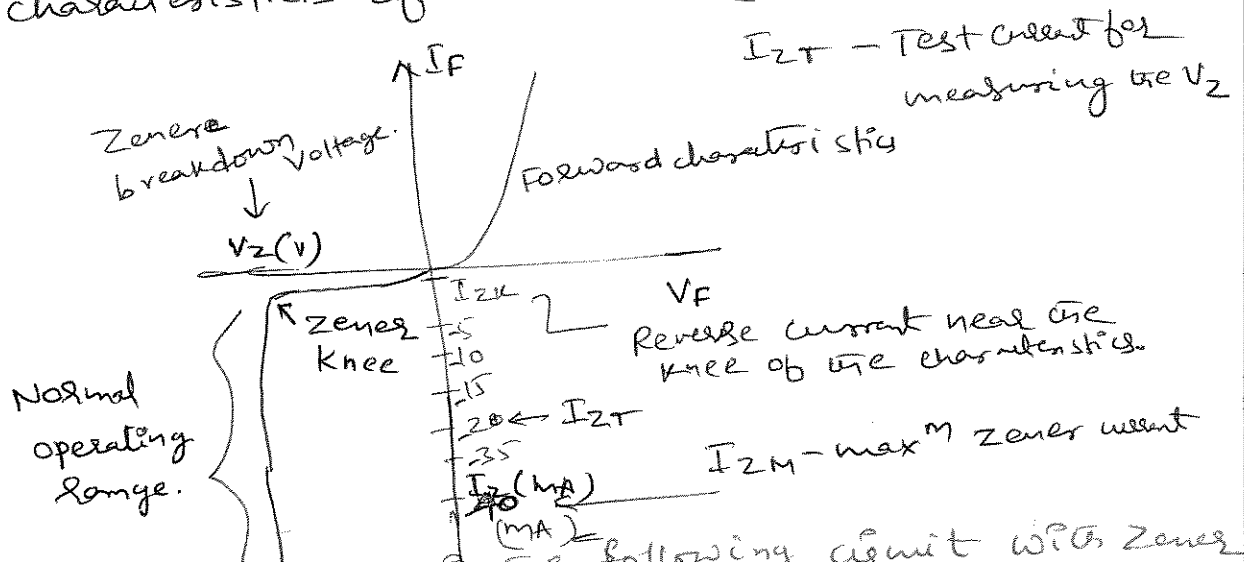 characteristics of
I_F
I_ZT - Test current for
measuring the V_Z
Zener
breakdown voltage.
V_Z(V)
Forward charateristics
I_ZK
V_F
Zener
Knee
Reverse current near the
knee of the characteristics.
-5
-10
-15
-20 ← I_ZT
-35
I_Z(mA)
(mA)
I_ZM - max^m zener current
Normal
operating
Range.
following circuit with Zener